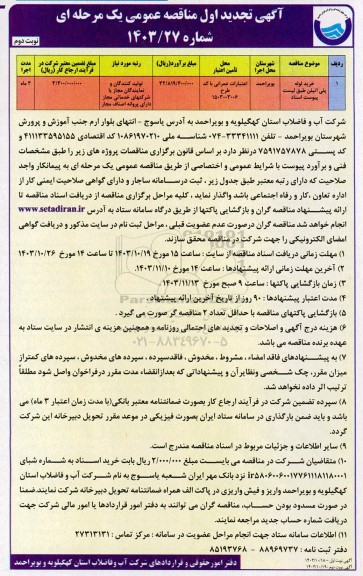 آگهی تجدید اول مناقصه عمومی یک مرحله ای
شماره ۱۴۰۳/۲۷
نوبت دوم
ردیف
موضوع مناقصه
شهرستان محل اجرا
محل تأمین اعتبار
مبلغ برآورد(ریال)
رتبه مورد نیاز
مبلغ تضمین معتبر شرکت در فرآیند ارجاع کار (ریال)
مدت اجرا
۱
خرید لوله پلی اتیلن طبق لیست پیوست اسناد
بویراحمد
اعتبارات عمرانی با کد طرح
تولید کنندگان و نمایندگان مجاز یا شرکتهای خدماتی مجاز دارای پروانه اصناف مجاز
۳ ماه
شرکت آب و فاضلاب استان کهگیلویه و بویراحمد به آدرس یاسوج - انتهای بلوار ارم جنب آموزش و پرورش
شهرستان بویراحمد - تلفن ۳۳۳۴۱۱۱۱-۰۷۴ شناسه ملی ۱۰۸۶۱۹۷۰۲۱۰ کد اقتصادی ۴۱۱۱۳۳۵۹۵۱۵۵ و
کد پستی ۷۵۹۱۷۵۷۸۷۸ درنظر دارد بر اساس قانون برگزاری مناقصات پروژه های زیر را طبق مشخصات
فنی و برآورد پیوست با شرایط عمومی و اختصاصی از طریق مناقصه عمومی یک مرحله ای به پیمانکار واجد
صلاحیت که دارای رتبه معتبر طبق جدول زیر ، ثبت درسامانه ساجار و دارای گواهی صلاحیت ایمنی کار از
اداره تعاون ،کار و رفاه اجتماعی باشد واگذار نماید ، کلیه مراحل برگزاری مناقصه از دریافت اسناد مناقصه تا
ارائه پیشنهاد مناقصه گران و بازگشایی پاکتها از طریق درگاه سامانه ستاد به آدرس www.setadiran.ir
انجام خواهد شد مناقصه گران درصورت عدم عضویت قبلی ، مراحل ثبت نام در سایت مذکور و دریافت گواهی
امضای الکترونیکی را جهت شرکت در مناقصه محقق سازند.
۱) مهلت زمانی دریافت اسناد مناقصه از سایت : ساعت ۱۵ مورخ ۱۴۰۳/۱۰/۱۹ تا ساعت ۱۴ مورخ ۱۴۰۳/۱۰/۲۶
۲) آخرین مهلت زمانی ارائه پیشنهادها : ساعت ۱۴ مورخ ۱۴۰۳/۱۱/۱۰.
۳) زمان بازگشایی پاکتها : ساعت ۹ صبح مورخ ۱۴۰۳/۱۱/۱۳
۴) مدت اعتبار پیشنهادها : ۹۰ روز از تاریخ آخرین ارائه پیشنهاد .
۵) بازگشایی پاکتهای مناقصه با حداقل تعداد ۲ مناقصه گر صورت می گیرد .
۶) هزینه درج آگهی و اصلاحات و تجدید های احتمالی روزنامه و همچنین هزینه ی انتشار در سایت ستاد به
عهده برنده مناقصه می باشد.
۷) به پیشنهادهای فاقد امضاء ، مشروط ، مخدوش ، فاقدسپرده ، سپرده های مخدوش ، سپرده های کمتراز
میزان مقرر، چک شخصی ونظایرآن و پیشنهاداتی که بعدازانقضاء مدت مقرر درفراخوان واصل شود مطلقاً
ترتیب اثر داده نخواهد شد.
۸) سپرده تضمین شرکت در فرآیند ارجاع کار بصورت ضمانتنامه معتبر بانکی(با مدت زمان اعتبار ۳ ماه) می
باشد و باید ضمن بارگذاری در سامانه ستاد ایران بصورت فیزیکی در موعد مقرر تحویل دبیرخانه این شرکت
گردد.
۹) سایر اطلاعات و جزئیات مربوط در اسناد مناقصه مندرج است.
۱۰) متقاضیان شرکت در مناقصه می بایست مبلغ ۲/۰۰۰/۰۰۰ ریال بابت خرید اسناد به شماره شبای
نزد بانک مهر ایران شعبه یاسوج به نام شرکت آب و فاضلاب استان
کهگیلویه و بویراحمد واریز و فیش واریزی در پاکت الف همراه ضمانتنامه تحویل دبیرخانه شرکت نمایند.ضمنا
در صورت مسدود بودن حساب، مناقصه گران می توانند به دفتر امور قراردادها یا امور مالی شرکت جهت
دریافت شماره حساب جدید مراجعه نمایند.
۱۱) اطلاعات سامانه ستاد جهت انجام مراحل عضویت در سامانه : مرکز تماس : ۲۷۳۱۳۱۳۱
دفتر ثبت نامه : ۸۸۹۶۹۷۳۷ - ۸۵۱۹۳۷۶۸
دفتر امور حقوقی و قراردادهای شرکت آب و فاضلاب استان کهگیلویه و بویراحمد